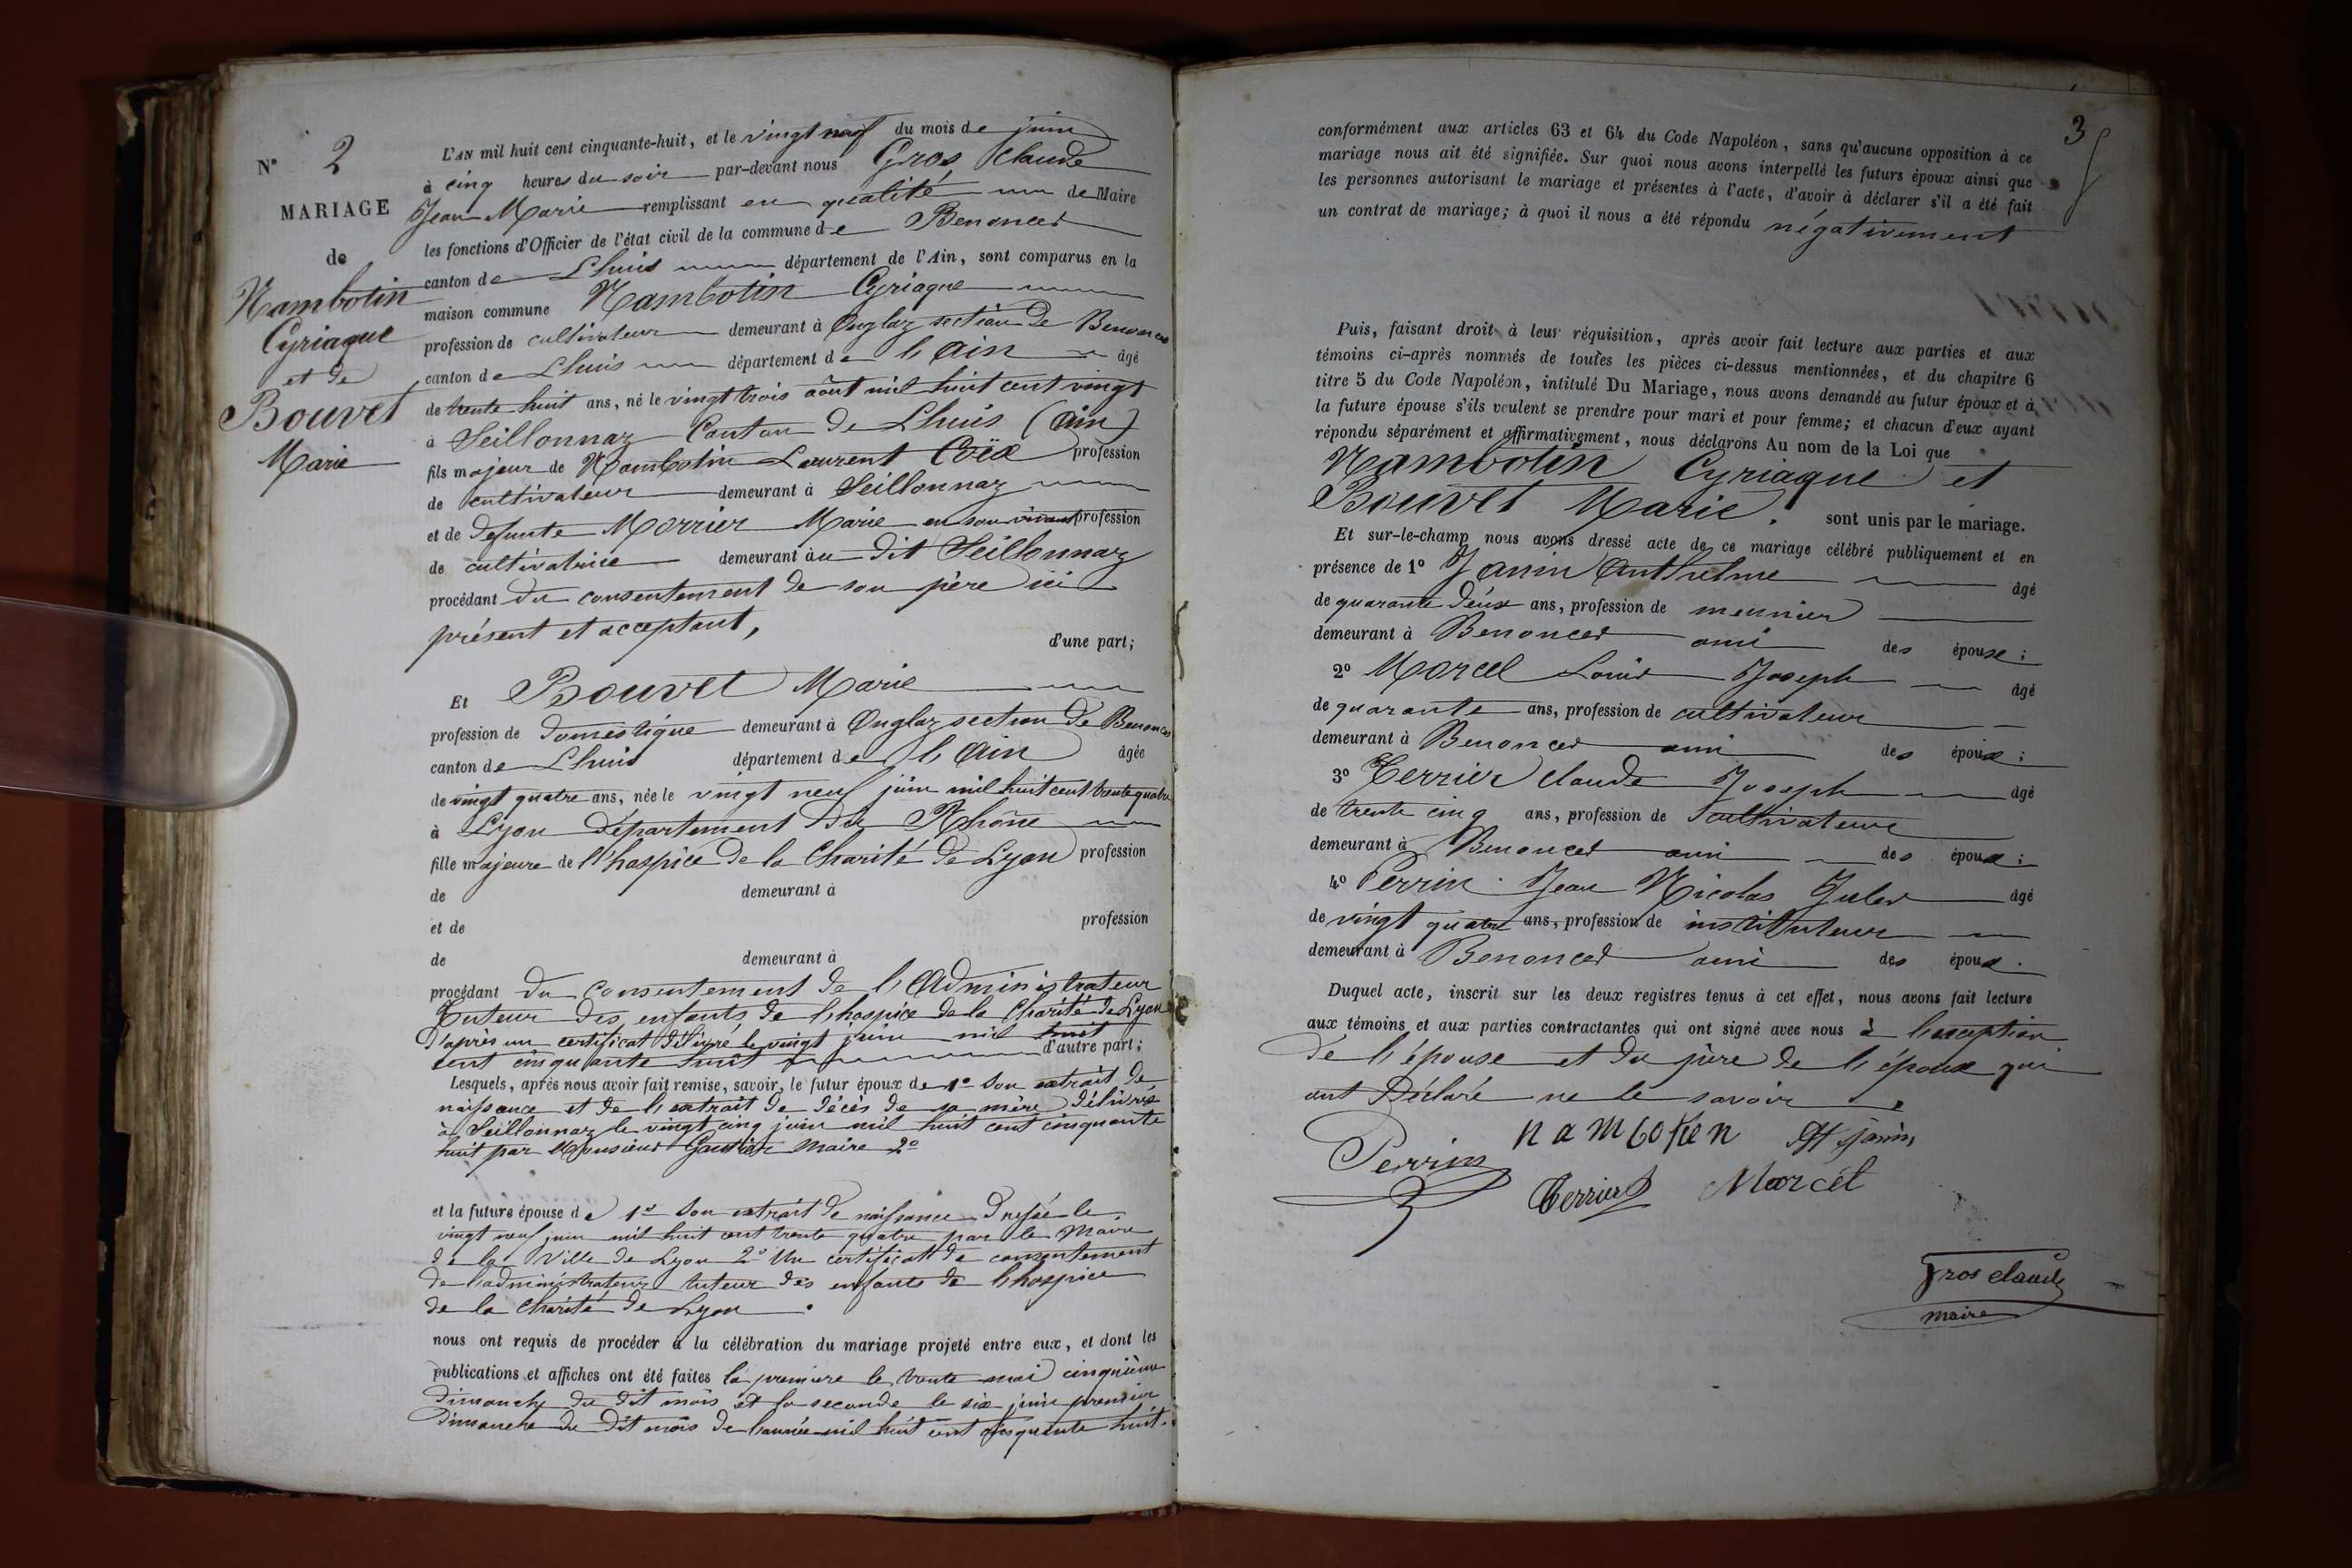 N° 2
MARIAGE
de
Nambotin
Cyriaque
et de
Bouvet
Marie
L'AN mil huit cent cinquante-huit, et le vingt neuf du mois de juin
à cinq heures du soir par-devant nous Gros Claude
Jean Marie remplissant en qualité de Maire
les fonctions d'Officier de l'état civil de la commune de Benonces
canton de Lhuis département de l'Ain, sont comparus en la
maison commune Nambotin Cyriaque
profession de cultivateur demeurant à Onglaz section de Benonces
canton de Lhuis département de l'Ain âgé
de trente huit ans, né le vingt trois août mil huit cent vingt
à Seillonnaz Canton de Lhuis (Ain)
fils majeur de Nambotin Laurent Croix profession
de cultivateur demeurant à Seillonnaz
et de defunte Morrier Marie en son vivant profession
de cultivatrice demeurant au dit Seillonnaz
procédant du consentement de son père ici
présent et acceptant,
d'une part;
Et Bouvet Marie
profession de domestique demeurant à Onglaz section de Benonces
canton de Lhuis département de l'Ain âgée
de vingt quatre ans, née le vingt neuf juin mil huit cent trente quatre
à Lyon département du Rhône
fille majeure de l'hospice de la Charité de Lyon profession
de demeurant à
et de profession
de demeurant à
procédant du consentement de l'Administrateur
Tuteur des enfants de l'hospice de la Charité de Lyon
d'après un certificat délivré le vingt juin mil huit
cent cinquante huit d'autre part;
Lesquels, après nous avoir fait remise, savoir, le futur époux de 1° son extrait de
naissance et de l'extrait de décès de sa mère délivrés
à Seillonnaz le vingt cinq juin mil huit cent cinquante
huit par Monsieur Gautier maire 2°
et la future épouse de 1° son extrait de naissance dressé le
vingt neuf juin mil huit cent trente quatre par le Maire
de la Ville de Lyon 2° Un certificat de consentement
de l'administrateur tuteur des enfants de l'hospice
de la Charité de Lyon.
nous ont requis de procéder à la célébration du mariage projeté entre eux, et dont les
publications et affiches ont été faites la première le trente mai cinquième
dimanche du dit mois et la seconde le six juin premier
dimanche du dit mois de l'année mil huit cent cinquante huit.
3
conformément aux articles 63 et 64 du Code Napoléon, sans qu'aucune opposition à ce
mariage nous ait été signifiée. Sur quoi nous avons interpellé les futurs époux ainsi que
les personnes autorisant le mariage et présentes à l'acte, d'avoir à déclarer s'il a été fait
un contrat de mariage; à quoi il nous a été répondu négativement
Puis, faisant droit à leur réquisition, après avoir fait lecture aux parties et aux
témoins ci-après nommés de toutes les pièces ci-dessus mentionnées, et du chapitre 6
titre 5 du Code Napoléon, intitulé Du Mariage, nous avons demandé au futur époux et à
la future épouse s'ils veulent se prendre pour mari et pour femme; et chacun d'eux ayant
répondu séparément et affirmativement, nous déclarons Au nom de la Loi que
Nambotin Cyriaque et
Bouvet Marie. sont unis par le mariage.
Et sur-le-champ nous avons dressé acte de ce mariage célébré publiquement et en
présence de 1° Janin Anthelme âgé
de quarante deux ans, profession de meunier
demeurant à Benonces ami des épouse;
2° Marcel Louis Joseph âgé
de quarante ans, profession de cultivateur
demeurant à Benonces ami des époux;
3° Terrier Claude Joseph âgé
de trente cinq ans, profession de cultivateur
demeurant à Benonces ami des époux;
4° Perrin Jean Nicolas Jules âgé
de vingt quatre ans, profession de instituteur
demeurant à Benonces ami des époux.
Duquel acte, inscrit sur les deux registres tenus à cet effet, nous avons fait lecture
aux témoins et aux parties contractantes qui ont signé avec nous à l'exception
de l'épouse et du père de l'époux qui
ont déclaré ne le savoir.
Perrin namboten Janin
Terrier Marcel
Gros claude
maire